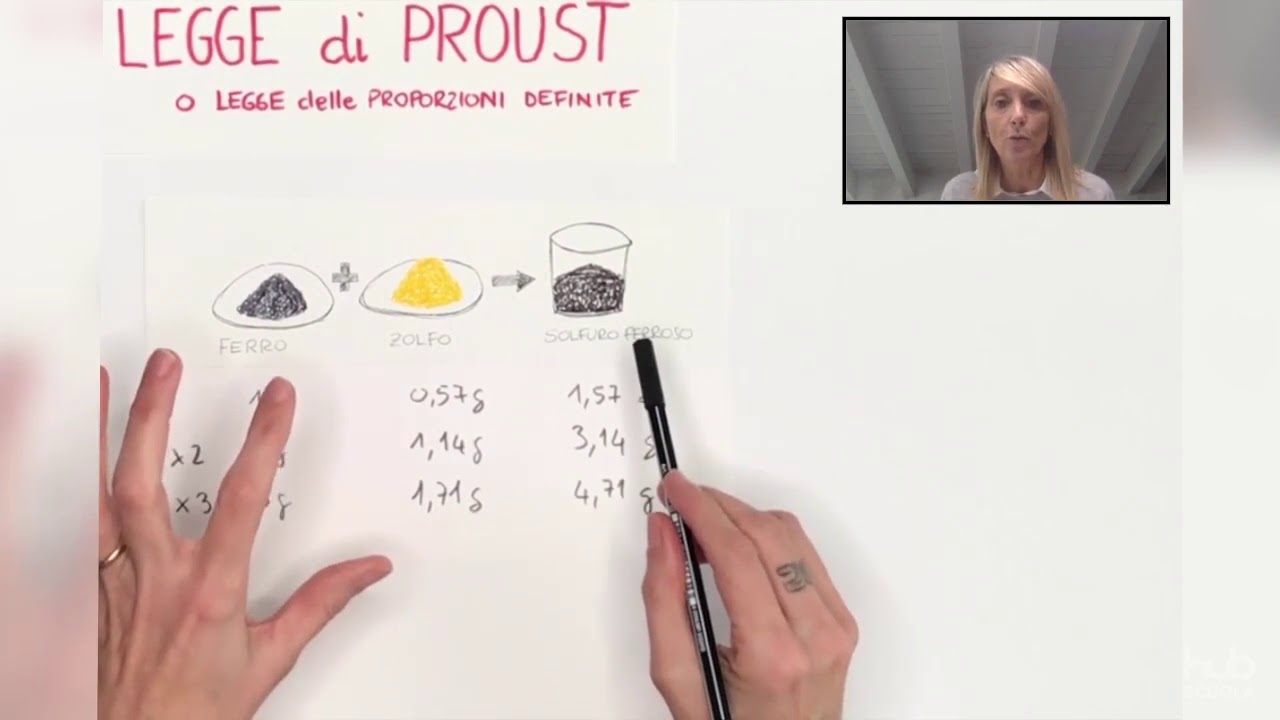 LEGGE di PROUST
O LEGGE delle PROPORZIONI DEFINITE
FERRO ZOLFO SOLFURO FERROSO
1 0,57g 1,57
x2 g 1,14g 3,14 g
x3 g 1,71g 4,71 g
hub
SCUOLA